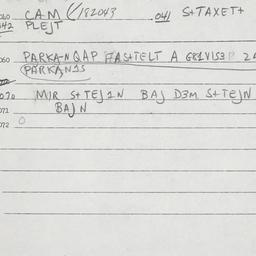 CAM (/182043 .041 S+TAXET+
042 PLEJT
060 PARKA-NQAP A S+TELT A
(PARKAN1S
070 MIR S+TEJ1N BAJ D3M S+TEJN
071 BAJN
072 O